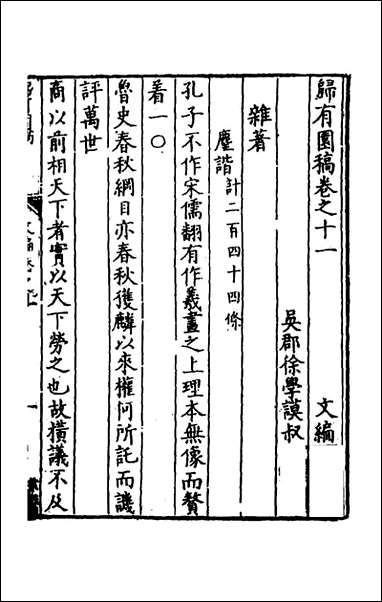 歸有園稿卷之十一 文編
吳郡徐學謨叔
雜著
麈諧計二百四十四條
孔子不作宋儒翻有作羲畫之上理本無像而贅
着一〇
魯史春秋綱目亦春秋獲麟以來權何所託而譏
評萬世
商以前相天下者實以天下勞之也故橫議不及